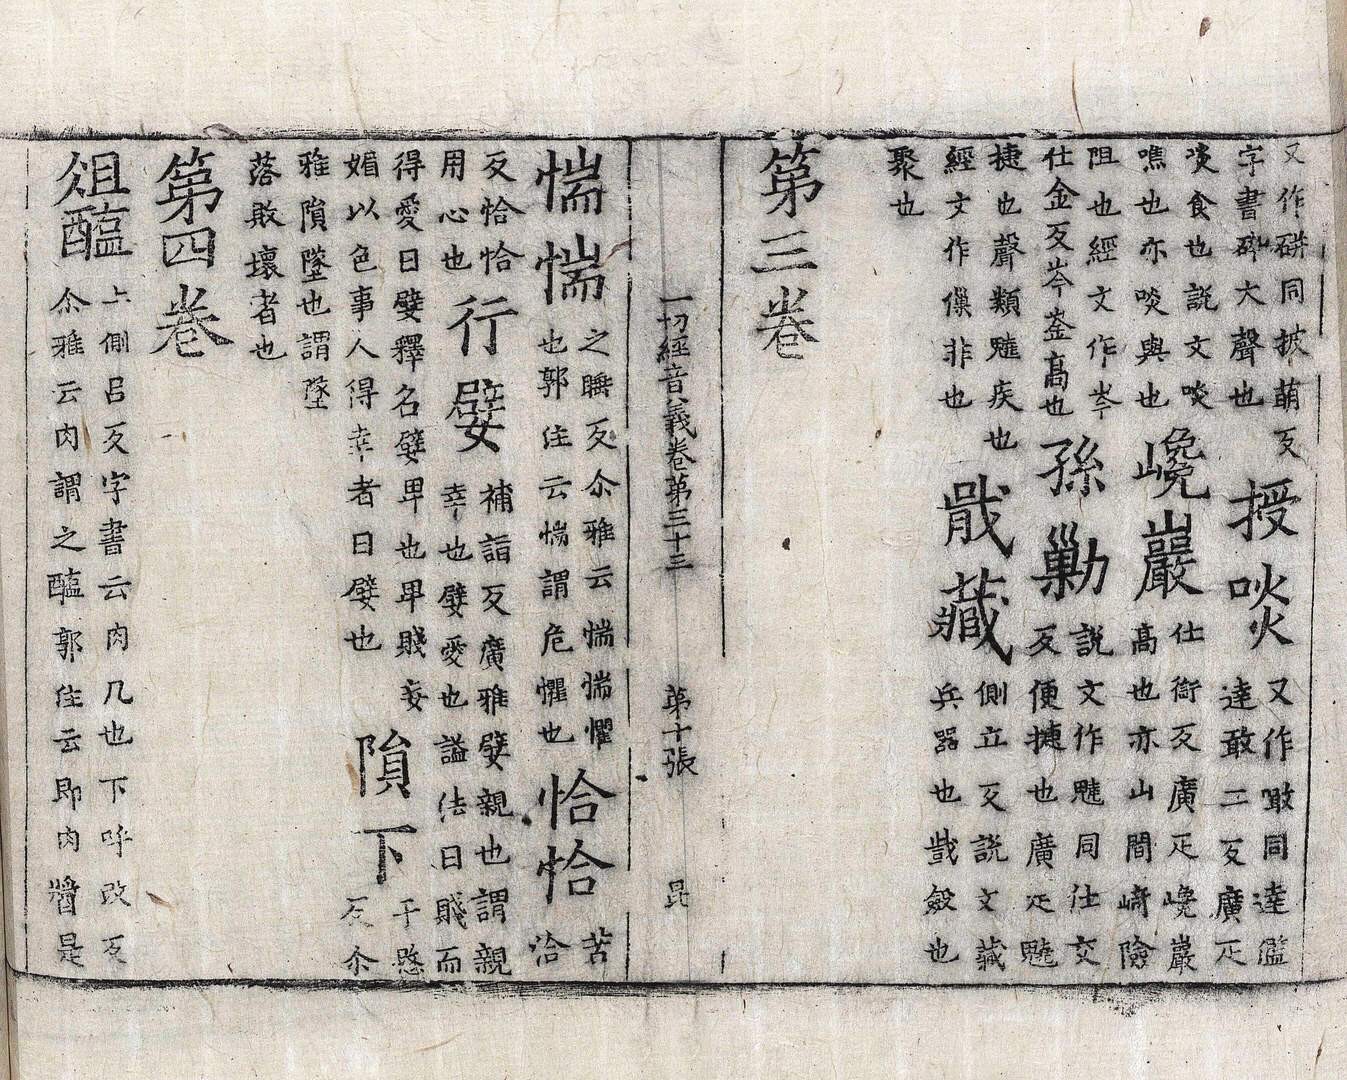 又作硑同披萌反字書硑大聲也授啖又作噉同達濫達敢二反廣疋
啖食也說文啖噍也亦啖與也巉巖仕銜反廣疋巉巖高也亦山間崎險
阻也經文作岑仕金反岑崟高也孫勦說文作同仕交反便揵也廣疋
捷也聲類疾也經文作僺非也戢藏側立反說文藏兵器也戢斂也
聚也
第三卷
一切經音義卷第三十三 第十張 昆
惴惴之睡反尒雅云惴惴懼也郭住云惴謂危懼也恰恰苦洽
反恰恰用心也行嬖補詣反廣雅嬖親也謂親幸也嬖愛也謚法曰賤而
得愛曰嬖釋名嬖卑也卑賤妾媚以色事人得幸者曰嬖也隕下于愍反尒
雅隕墜也謂墜落敗壞者也
第四卷
俎醢上側呂反字書云肉几也下呼改反尒雅云肉謂之醢郭住云即肉醬是